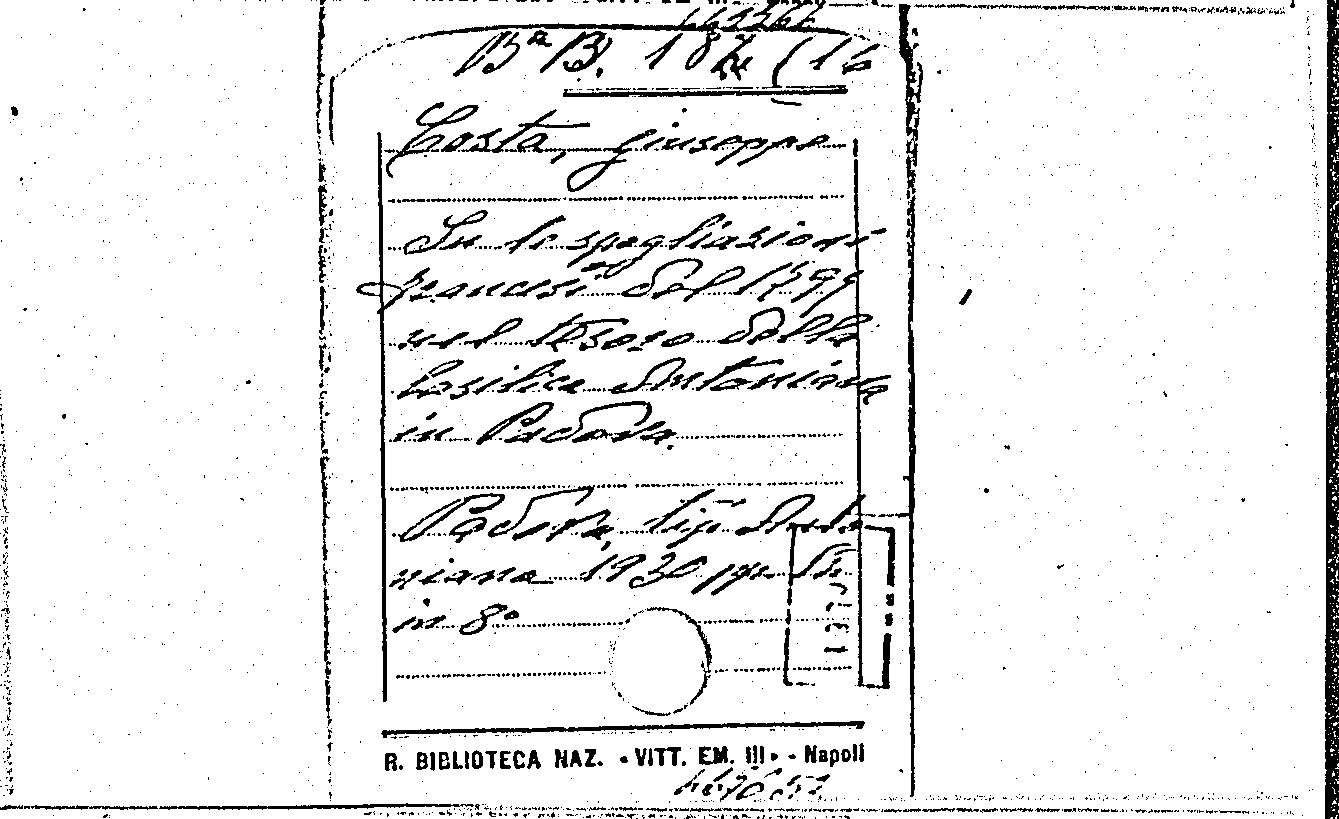 Bª B. 187 (16
Costa, Giuseppe
Su le spogliazioni
francesi del 1797
nel tesoro della
basilica Antoniana
in Padova.
Padova, tip. Anto
niana 1930 pp.
in 8º
R. BIBLIOTECA NAZ. «VITT. EM. III» - Napoli